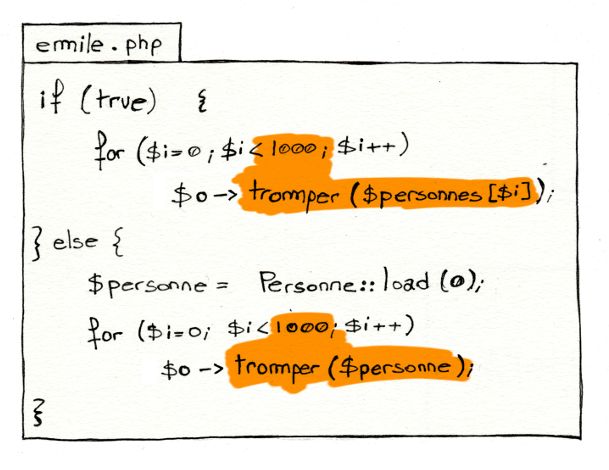 ermile.php
if (true) {
for ($i=0; $i<1000; $i++)
$o->tromper($personnes[$i]);
} else {
$personne = Personne::load(0);
for ($i=0; $i<1000; $i++)
$o->tromper($personne);
}